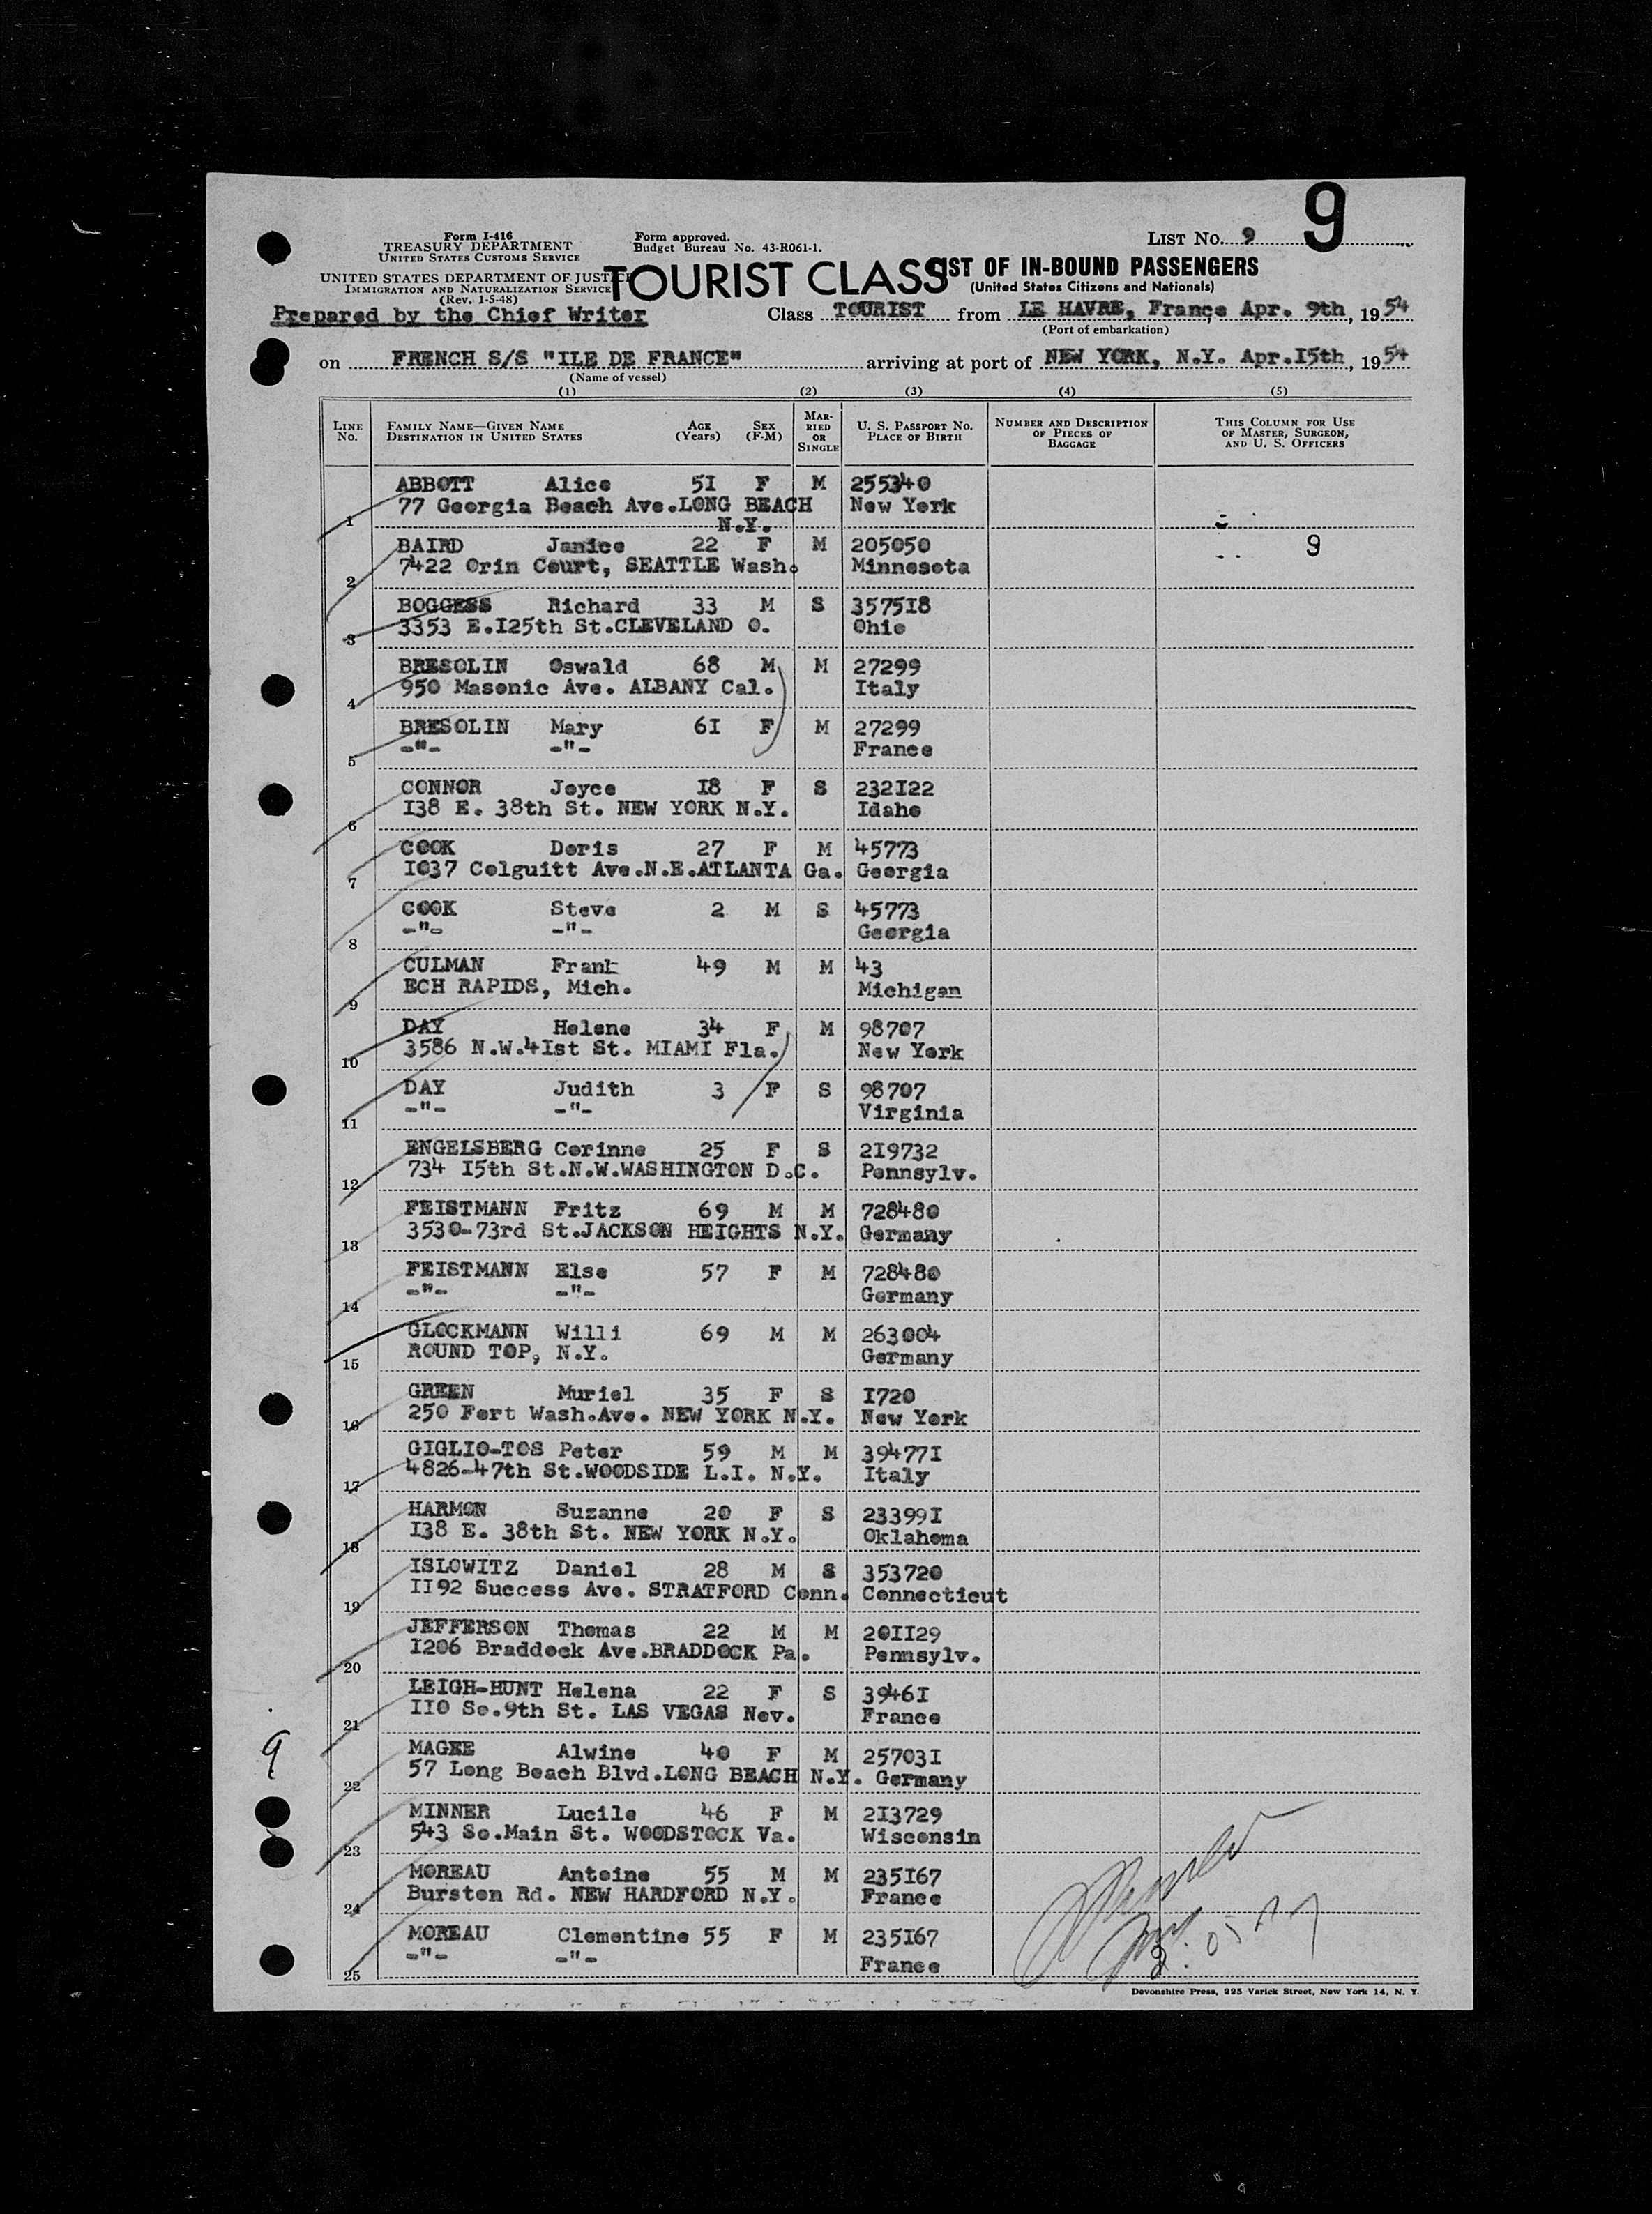 9
Form I-416
TREASURY DEPARTMENT
UNITED STATES CUSTOMS SERVICE
UNITED STATES DEPARTMENT OF JUSTICE
IMMIGRATION AND NATURALIZATION SERVICE
(Rev. 1-5-48)
Form approved.
Budget Bureau No. 43-R061-1.
LIST No. 9
TOURIST CLASS
LIST OF IN-BOUND PASSENGERS
(United States Citizens and Nationals)
Prepared by the Chief Writer
Class TOURIST from LE HAVRE, France Apr. 9th, 1954
(Port of embarkation)
on FRENCH S/S "ILE DE FRANCE" arriving at port of NEW YORK, N.Y. Apr.I5th, 1954
(Name of vessel)
(1) (2) (3) (4) (5)
LINE No. FAMILY NAME—GIVEN NAME DESTINATION IN UNITED STATES AGE (Years) SEX (F-M) MARRIED OR SINGLE U. S. PASSPORT No. PLACE OF BIRTH NUMBER AND DESCRIPTION OF PIECES OF BAGGAGE THIS COLUMN FOR USE OF MASTER, SURGEON, AND U. S. OFFICERS
ABBOTT Alice 5I F M 255340
77 Georgia Beach Ave.LONG BEACH New York
1 N.Y.
BAIRD Janice 22 F M 205050 9
2 7422 Orin Court, SEATTLE Wash. Minnesota
BOGGESS Richard 33 M S 3575I8
3 3353 E.I25th St.CLEVELAND O. Ohio
BRESOLIN Oswald 68 M M 27299
4 950 Masonic Ave. ALBANY Cal. Italy
BRESOLIN Mary 6I F M 27299
5 -"- -"- France
CONNOR Joyce I8 F S 232I22
6 I38 E. 38th St. NEW YORK N.Y. Idaho
COOK Doris 27 F M 45773
7 I037 Colguitt Ave.N.E.ATLANTA Ga. Georgia
COOK Steve 2 M S 45773
8 -"- -"- Georgia
CULMAN Frank 49 M M 43
9 ECH RAPIDS, Mich. Michigan
DAY Helene 34 F M 98707
10 3586 N.W.4Ist St. MIAMI Fla. New York
DAY Judith 3 F S 98707
11 -"- -"- Virginia
ENGELSBERG Corinne 25 F S 2I9732
12 734 I5th St.N.W.WASHINGTON D.C. Pennsylv.
FEISTMANN Fritz 69 M M 728480
13 3530-73rd St.JACKSON HEIGHTS N.Y. Germany
FEISTMANN Else 57 F M 728480
14 -"- -"- Germany
GLOCKMANN Willi 69 M M 263004
15 ROUND TOP, N.Y. Germany
GREEN Muriel 35 F S I720
16 250 Fort Wash.Ave. NEW YORK N.Y. New York
GIGLIO-TOS Peter 59 M M 39477I
17 4826-47th St.WOODSIDE L.I. N.Y. Italy
HARMON Suzanne 20 F S 23399I
18 I38 E. 38th St. NEW YORK N.Y. Oklahoma
ISLOWITZ Daniel 28 M S 353720
19 II92 Success Ave. STRATFORD Conn. Connecticut
JEFFERSON Thomas 22 M M 20II29
20 I206 Braddock Ave.BRADDOCK Pa. Pennsylv.
LEIGH-HUNT Helena 22 F S 3946I
21 II0 So.9th St. LAS VEGAS Nev. France
9
MAGEE Alwine 40 F M 25703I
22 57 Long Beach Blvd.LONG BEACH N.Y. Germany
MINNER Lucile 46 F M 2I3729
23 543 So.Main St. WOODSTOCK Va. Wisconsin
MOREAU Antoine 55 M M 235I67
24 Burston Rd. NEW HARDFORD N.Y. France
MOREAU Clementine 55 F M 235I67
25 -"- -"- France
Devonshire Press, 225 Varick Street, New York 14, N. Y.